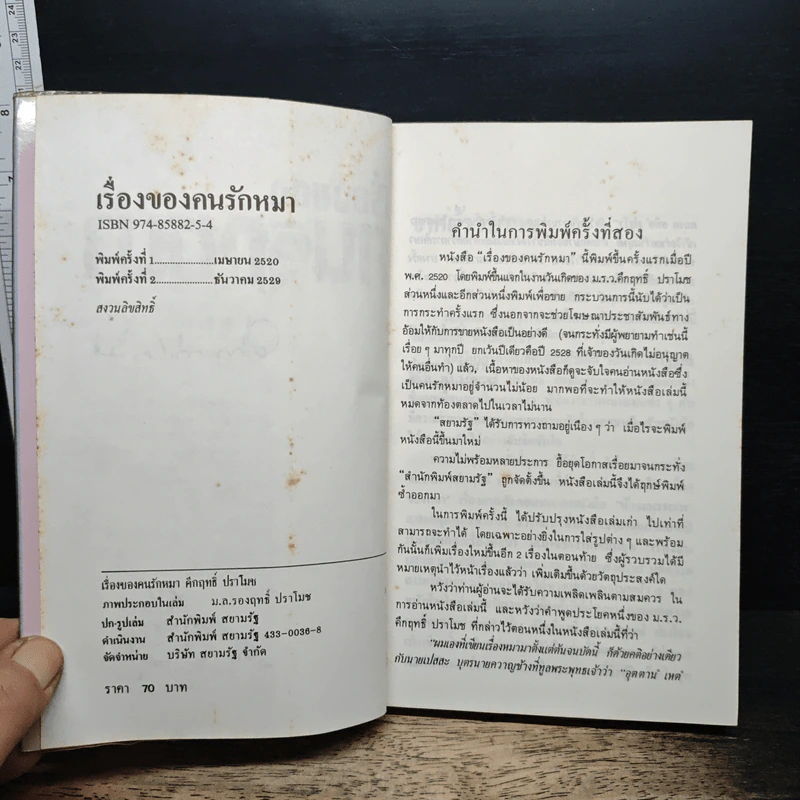 เรื่องของคนรักหมา
ISBN 974-85882-5-4
พิมพ์ครั้งที่ 1......................เมษายน 2520
พิมพ์ครั้งที่ 2......................ธันวาคม 2529
สงวนลิขสิทธิ์
เรื่องของคนรักหมา คึกฤทธิ์ ปราโมช
ภาพประกอบในเล่ม ม.ล.รองฤทธิ์ ปราโมช
ปก-รูปเล่ม สำนักพิมพ์ สยามรัฐ
ดำเนินงาน สำนักพิมพ์ สยามรัฐ 433-0036-8
จัดจำหน่าย บริษัท สยามรัฐ จำกัด
ราคา 70 บาท
คำนำในการพิมพ์ครั้งที่สอง
หนังสือ "เรื่องของคนรักหมา" นี้พิมพ์ขึ้นครั้งแรกเมื่อปี
พ.ศ. 2520 โดยพิมพ์ขึ้นแจกในงานวันเกิดของ ม.ร.ว.คึกฤทธิ์ ปราโมช
ส่วนหนึ่งและอีกส่วนหนึ่งพิมพ์เพื่อขาย กระบวนการนี้นับได้ว่าเป็น
การกระทำครั้งแรก ซึ่งนอกจากจะช่วยโฆษณาประชาสัมพันธ์ทาง
อ้อมให้กับการขายหนังสือเป็นอย่างดี (จนกระทั่งมีผู้พยายามทำเช่นนี้
เรื่อย ๆ มาทุกปี ยกเว้นปีเดียวคือปี 2528 ที่เจ้าของวันเกิดไม่อนุญาต
ให้คนอื่นทำ) แล้ว, เนื้อหาของหนังสือก็ดูจะจับใจคนอ่านหนังสือซึ่ง
เป็นคนรักหมาอยู่จำนวนไม่น้อย มากพอที่จะทำให้หนังสือเล่มนี้
หมดจากท้องตลาดไปในเวลาไม่นาน
"สยามรัฐ" ได้รับการทวงถามอยู่เนือง ๆ ว่า เมื่อไรจะพิมพ์
หนังสือนี้ขึ้นมาใหม่
ความไม่พร้อมหลายประการ ยื้อยุดโอกาสเรื่อยมาจนกระทั่ง
"สำนักพิมพ์สยามรัฐ" ถูกจัดตั้งขึ้น หนังสือเล่มนี้จึงได้ฤกษ์พิมพ์
ซ้ำออกมา
ในการพิมพ์ครั้งนี้ ได้ปรับปรุงหนังสือเล่มเก่า ไปเท่าที่
สามารถจะทำได้ โดยเฉพาะอย่างยิ่งในการใส่รูปต่าง ๆ และพร้อม
กันนั้นก็เพิ่มเรื่องใหม่ขึ้นอีก 2 เรื่องในตอนท้าย ซึ่งผู้รวบรวมได้มี
หมายเหตุนำไว้หน้าเรื่องแล้วว่า เพิ่มเติมขึ้นด้วยวัตถุประสงค์ใด
หวังว่าท่านผู้อ่านจะได้รับความเพลิดเพลินตามสมควร ใน
การอ่านหนังสือเล่มนี้ และหวังว่าคำพูดประโยคหนึ่งของ ม.ร.ว.
คึกฤทธิ์ ปราโมช ที่กล่าวไว้ตอนหนึ่งในหนังสือเล่มนี้ที่ว่า
"ผมเองที่เขียนเรื่องหมามาตั้งแต่ต้นจนบัดนี้ ก็ด้วยคติอย่างเดียว
กับนายเปสสะ บุตรนายควาญช้างที่ทูลพระพุทธเจ้าว่า "อุตตานํ เหตํ